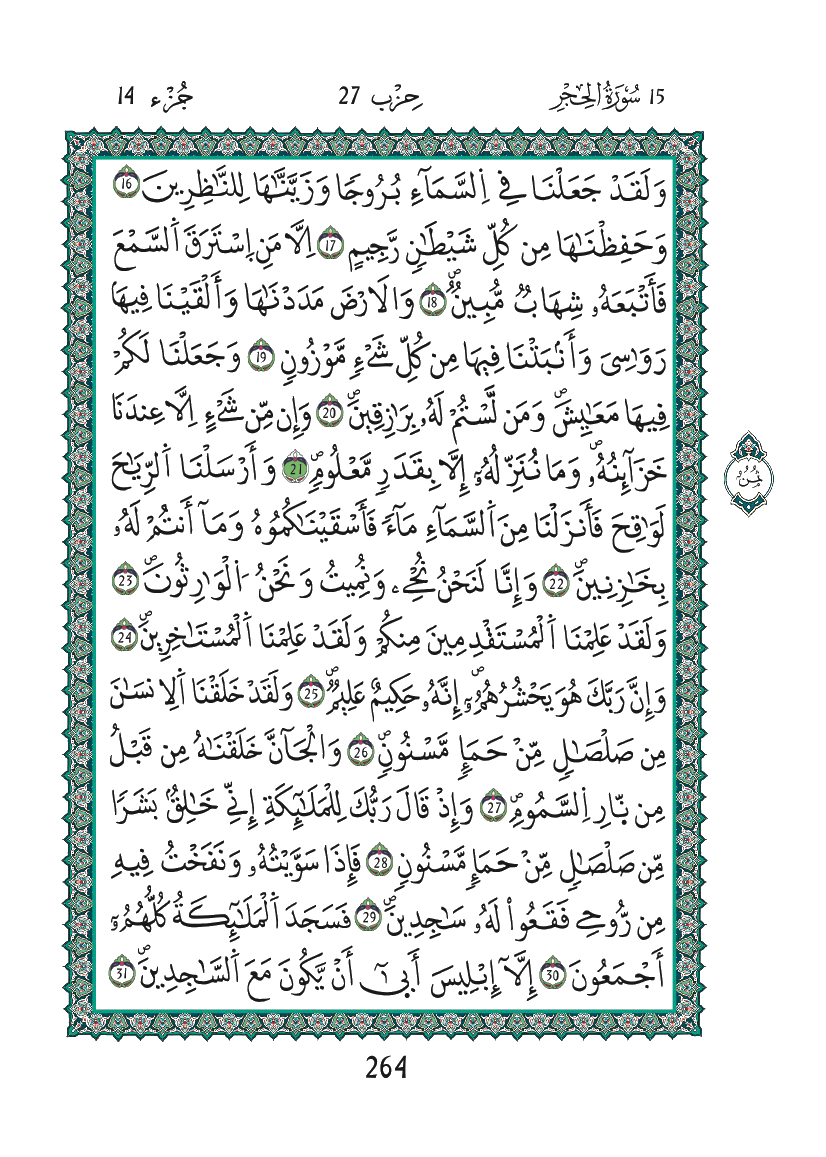 15 سُورَةُ الْحِجْرِ حِزْب 27 جُزْء 14
وَلَقَدْ جَعَلْنَا فِے اِ۬لسَّمَآءِ بُرُوجاٗ وَزَيَّنَّٰهَا لِلنَّٰظِرِينَ 16
وَحَفِظْنَٰهَا مِن كُلِّ شَيْطَٰنٖ رَّجِيمٍ 17 اِلَّا مَنِ اِ۪سْتَرَقَ اَ۬لسَّمْعَ
فَأَتْبَعَهُۥ شِهَابٞ مُّبِينٞۖ 18 وَالَارْضَ مَدَدْنَٰهَا وَأَلْقَيْنَا فِيهَا
رَوَٰسِيَ وَأَنۢبَتْنَا فِيهَا مِن كُلِّ شَےْءٖ مَّوْزُونٖ 19 وَجَعَلْنَا لَكُمْ
فِيهَا مَعَٰيِشَۖ وَمَن لَّسْتُمْ لَهُۥ بِرَٰزِقِينَۖ 20 وَإِن مِّن شَےْءٍ اِلَّا عِندَنَا
خَزَآئِنُهُۥۖ وَمَا نُنَزِّلُهُۥٓ إِلَّا بِقَدَرٖ مَّعْلُومٖۖ 21 وَأَرْسَلْنَا اَ۬لرِّيَٰحَ
لَوَٰقِحَ فَأَنزَلْنَا مِنَ اَ۬لسَّمَآءِ مَآءٗ فَأَسْقَيْنَٰكُمُوهُ وَمَآ أَنتُمْ لَهُۥ
بِخَٰزِنِينَۖ 22 وَإِنَّا لَنَحْنُ نُحْےِۦ وَنُمِيتُ وَنَحْنُ اُ۬لْوَٰرِثُونَۖ 23
وَلَقَدْ عَلِمْنَا اَ۬لْمُسْتَقْدِمِينَ مِنكُمْ وَلَقَدْ عَلِمْنَا اَ۬لْمُسْتَٰخِرِينَۖ 24
وَإِنَّ رَبَّكَ هُوَ يَحْشُرُهُمُۥٓۖ إِنَّهُۥ حَكِيمٌ عَلِيمٞۖ 25 وَلَقَدْ خَلَقْنَا اَ۬لِانسَٰنَ
مِن صَلْصَٰلٖ مِّنْ حَمَإٖ مَّسْنُونٖۖ 26 وَالْجَآنَّ خَلَقْنَٰهُ مِن قَبْلُ
مِن نّ۪ارِ اِ۬لسَّمُومِۖ 27 وَإِذْ قَالَ رَبُّكَ لِلْمَلَٰٓئِكَةِ إِنِّے خَٰلِقُۢ بَشَراٗ
مِّن صَلْصَٰلٖ مِّنْ حَمَإٖ مَّسْنُونٖ 28 فَإِذَا سَوَّيْتُهُۥ وَنَفَخْتُ فِيهِ
مِن رُّوحِے فَقَعُواْ لَهُۥ سَٰجِدِينَۖ 29 فَسَجَدَ اَ۬لْمَلَٰٓئِكَةُ كُلُّهُمُۥٓ
أَجْمَعُونَ 30 إِلَّآ إِبْلِيسَ أَب۪يٰٓ أَنْ يَّكُونَ مَعَ اَ۬لسَّٰجِدِينَۖ 31
ثُمُن
264